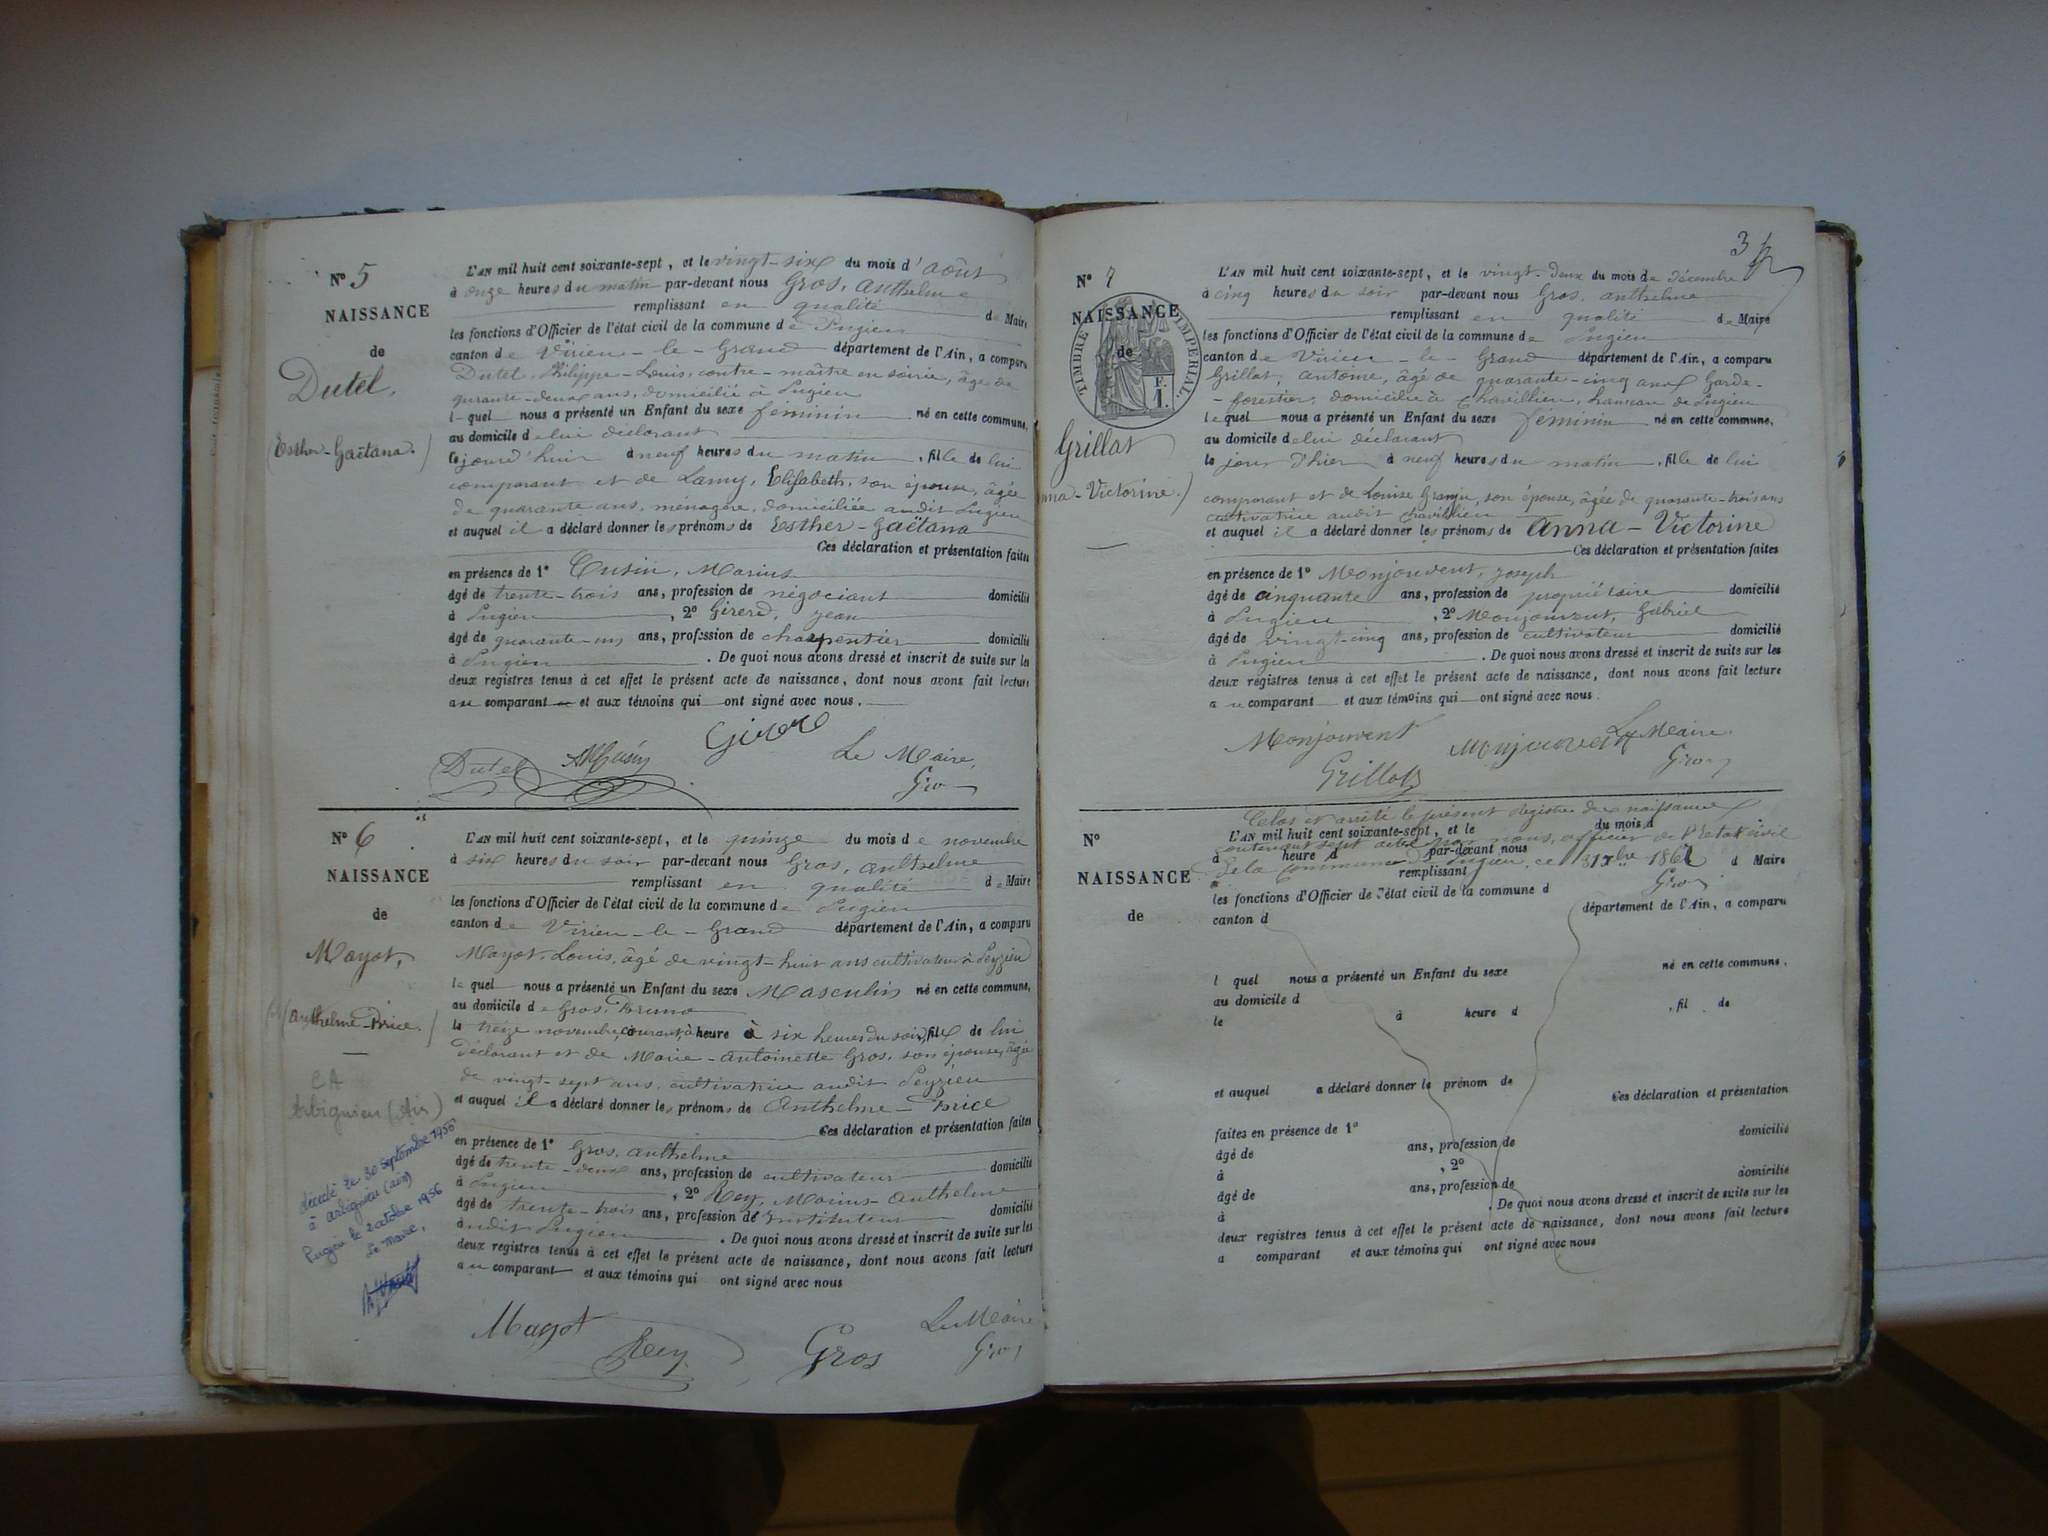 N° 5
NAISSANCE
de
Dutel,
(Esther-Gaëtana.)
L'AN mil huit cent soixante-sept, et le vingt-six du mois d'août
à onze heures du matin par-devant nous Gros, Anthelme
remplissant en qualité de Maire
les fonctions d'Officier de l'état civil de la commune de Pugieu
canton de Virieu-le-Grand département de l'Ain, a comparu
Dutel, Philippe-Louis, contre-maître en soirie, âgé de
quarante-deux ans, domicilié à Pugieu
lequel nous a présenté un Enfant du sexe féminin né en cette commune,
au domicile de lui déclarant
le jourd'hui à neuf heures du matin, fille de lui
comparant et de Lamy, Elisabeth, son épouse, âgée
de quarante ans, ménagère, domiciliée audit Pugieu
et auquel il a déclaré donner les prénoms de Esther-Gaëtana
Ces déclaration et présentation faites
en présence de 1° Cusin, Marius
âgé de trente-trois ans, profession de négociant domicilié
à Pugieu, 2° Girerd, Jean
âgé de quarante-un ans, profession de charpentier domicilié
à Pugieu. De quoi nous avons dressé et inscrit de suite sur les
deux registres tenus à cet effet le présent acte de naissance, dont nous avons fait lecture
au comparant et aux témoins qui ont signé avec nous.
Girerd
Dutel Cusin Le Maire,
Gros
N° 6
NAISSANCE
de
Mayot,
(Anthelme-Brice.)
CA
Arbignieu (Ain)
décédé le 30 septembre 1956
à Arbignieu (Ain)
Pugieu le 2 octobre 1956
Le Maire,
L'AN mil huit cent soixante-sept, et le quinze du mois de novembre
à six heures du soir par-devant nous Gros, Anthelme
remplissant en qualité de Maire
les fonctions d'Officier de l'état civil de la commune de Pugieu
canton de Virieu-le-Grand département de l'Ain, a comparu
Mayot, Louis, âgé de vingt-huit ans cultivateur à Peyzieu
lequel nous a présenté un Enfant du sexe Masculin né en cette commune,
au domicile de Gros, Bruno
le treize novembre, courant, à heure à six heures du soir, fils de lui
déclarant et de Marie-Antoinette Gros, son épouse, âgée
de vingt-sept ans, cultivatrice audit Peyzieu
et auquel il a déclaré donner les prénoms de Anthelme-Brice
Ces déclaration et présentation faites
en présence de 1° Gros, Anthelme
âgé de trente-deux ans, profession de cultivateur domicilié
à Pugieu, 2° Rey, Marius-Anthelme
âgé de trente-trois ans, profession de Instituteur domicilié
audit Pugieu. De quoi nous avons dressé et inscrit de suite sur les
deux registres tenus à cet effet le présent acte de naissance, dont nous avons fait lecture
au comparant et aux témoins qui ont signé avec nous
Mayot Rey Gros Le Maire
Gros
3
N° 7
NAISSANCE
de
TIMBRE IMPERIAL.
F.
1.
Grillat
Anna-Victorine.)
L'AN mil huit cent soixante-sept, et le vingt-deux du mois de décembre
à cinq heures du soir par-devant nous Gros, Anthelme
remplissant en qualité de Maire
les fonctions d'Officier de l'état civil de la commune de Pugieu
canton de Virieu-le-Grand département de l'Ain, a comparu
Grillat, Antoine, âgé de quarante-cinq ans, Garde-
-forestier, domicilié à Chavillieu, hameau de Pugieu
lequel nous a présenté un Enfant du sexe féminin né en cette commune,
au domicile de lui déclarant
le jour d'hier à neuf heures du matin, fille de lui
comparant et de Louise Granju, son épouse, âgée de quarante-trois ans
cultivatrice audit Chavillieu
et auquel il a déclaré donner les prénoms de Anna-Victorine
Ces déclaration et présentation faites
en présence de 1° Monjouvent, Joseph
âgé de cinquante ans, profession de propriétaire domicilié
à Pugieu, 2° Monjouvent, Gabriel
âgé de vingt-cinq ans, profession de cultivateur domicilié
à Pugieu. De quoi nous avons dressé et inscrit de suite sur les
deux registres tenus à cet effet le présent acte de naissance, dont nous avons fait lecture
au comparant et aux témoins qui ont signé avec nous.
Monjouvent Monjouvent Le Maire.
Grillat Gros
Clos et arrêté le présent Registre de naissance
contenant sept actes par nous, officier de l'Etat civil
de la commune de Pugieu, ce 31 Xbre 1867
Gros
N°
NAISSANCE
de
L'AN mil huit cent soixante-sept, et le du mois d
à heure d par-devant nous
remplissant d Maire
les fonctions d'Officier de l'état civil de la commune d
canton d département de l'Ain, a comparu
l quel nous a présenté un Enfant du sexe né en cette commune,
au domicile d
le à heure d , fil de
et auquel a déclaré donner le prénom de
Ces déclaration et présentation
faites en présence de 1°
âgé de ans, profession de domicilié
à , 2°
âgé de ans, profession de domicilié
à . De quoi nous avons dressé et inscrit de suite sur les
deux registres tenus à cet effet le présent acte de naissance, dont nous avons fait lecture
a comparant et aux témoins qui ont signé avec nous